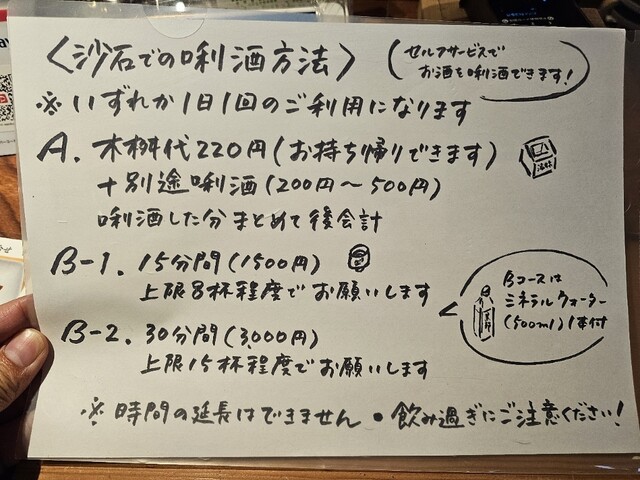 〈沙石での唎酒方法〉
(セルフサービスで
お酒を唎酒できます!
※いずれか1日1回のご利用になります
A. 木桝代220円(お持ち帰りできます)
+別途唎酒(200円〜500円)
唎酒した分まとめて後会計
B-1. 15分間(1500円)
上限8杯程度でお願いします
B-2. 30分間(3,000円)
上限15杯程度でお願いします
Bコースは
ミネラルウォーター
(500ml)1本付
※時間の延長はできません・飲み過ぎにご注意ください!